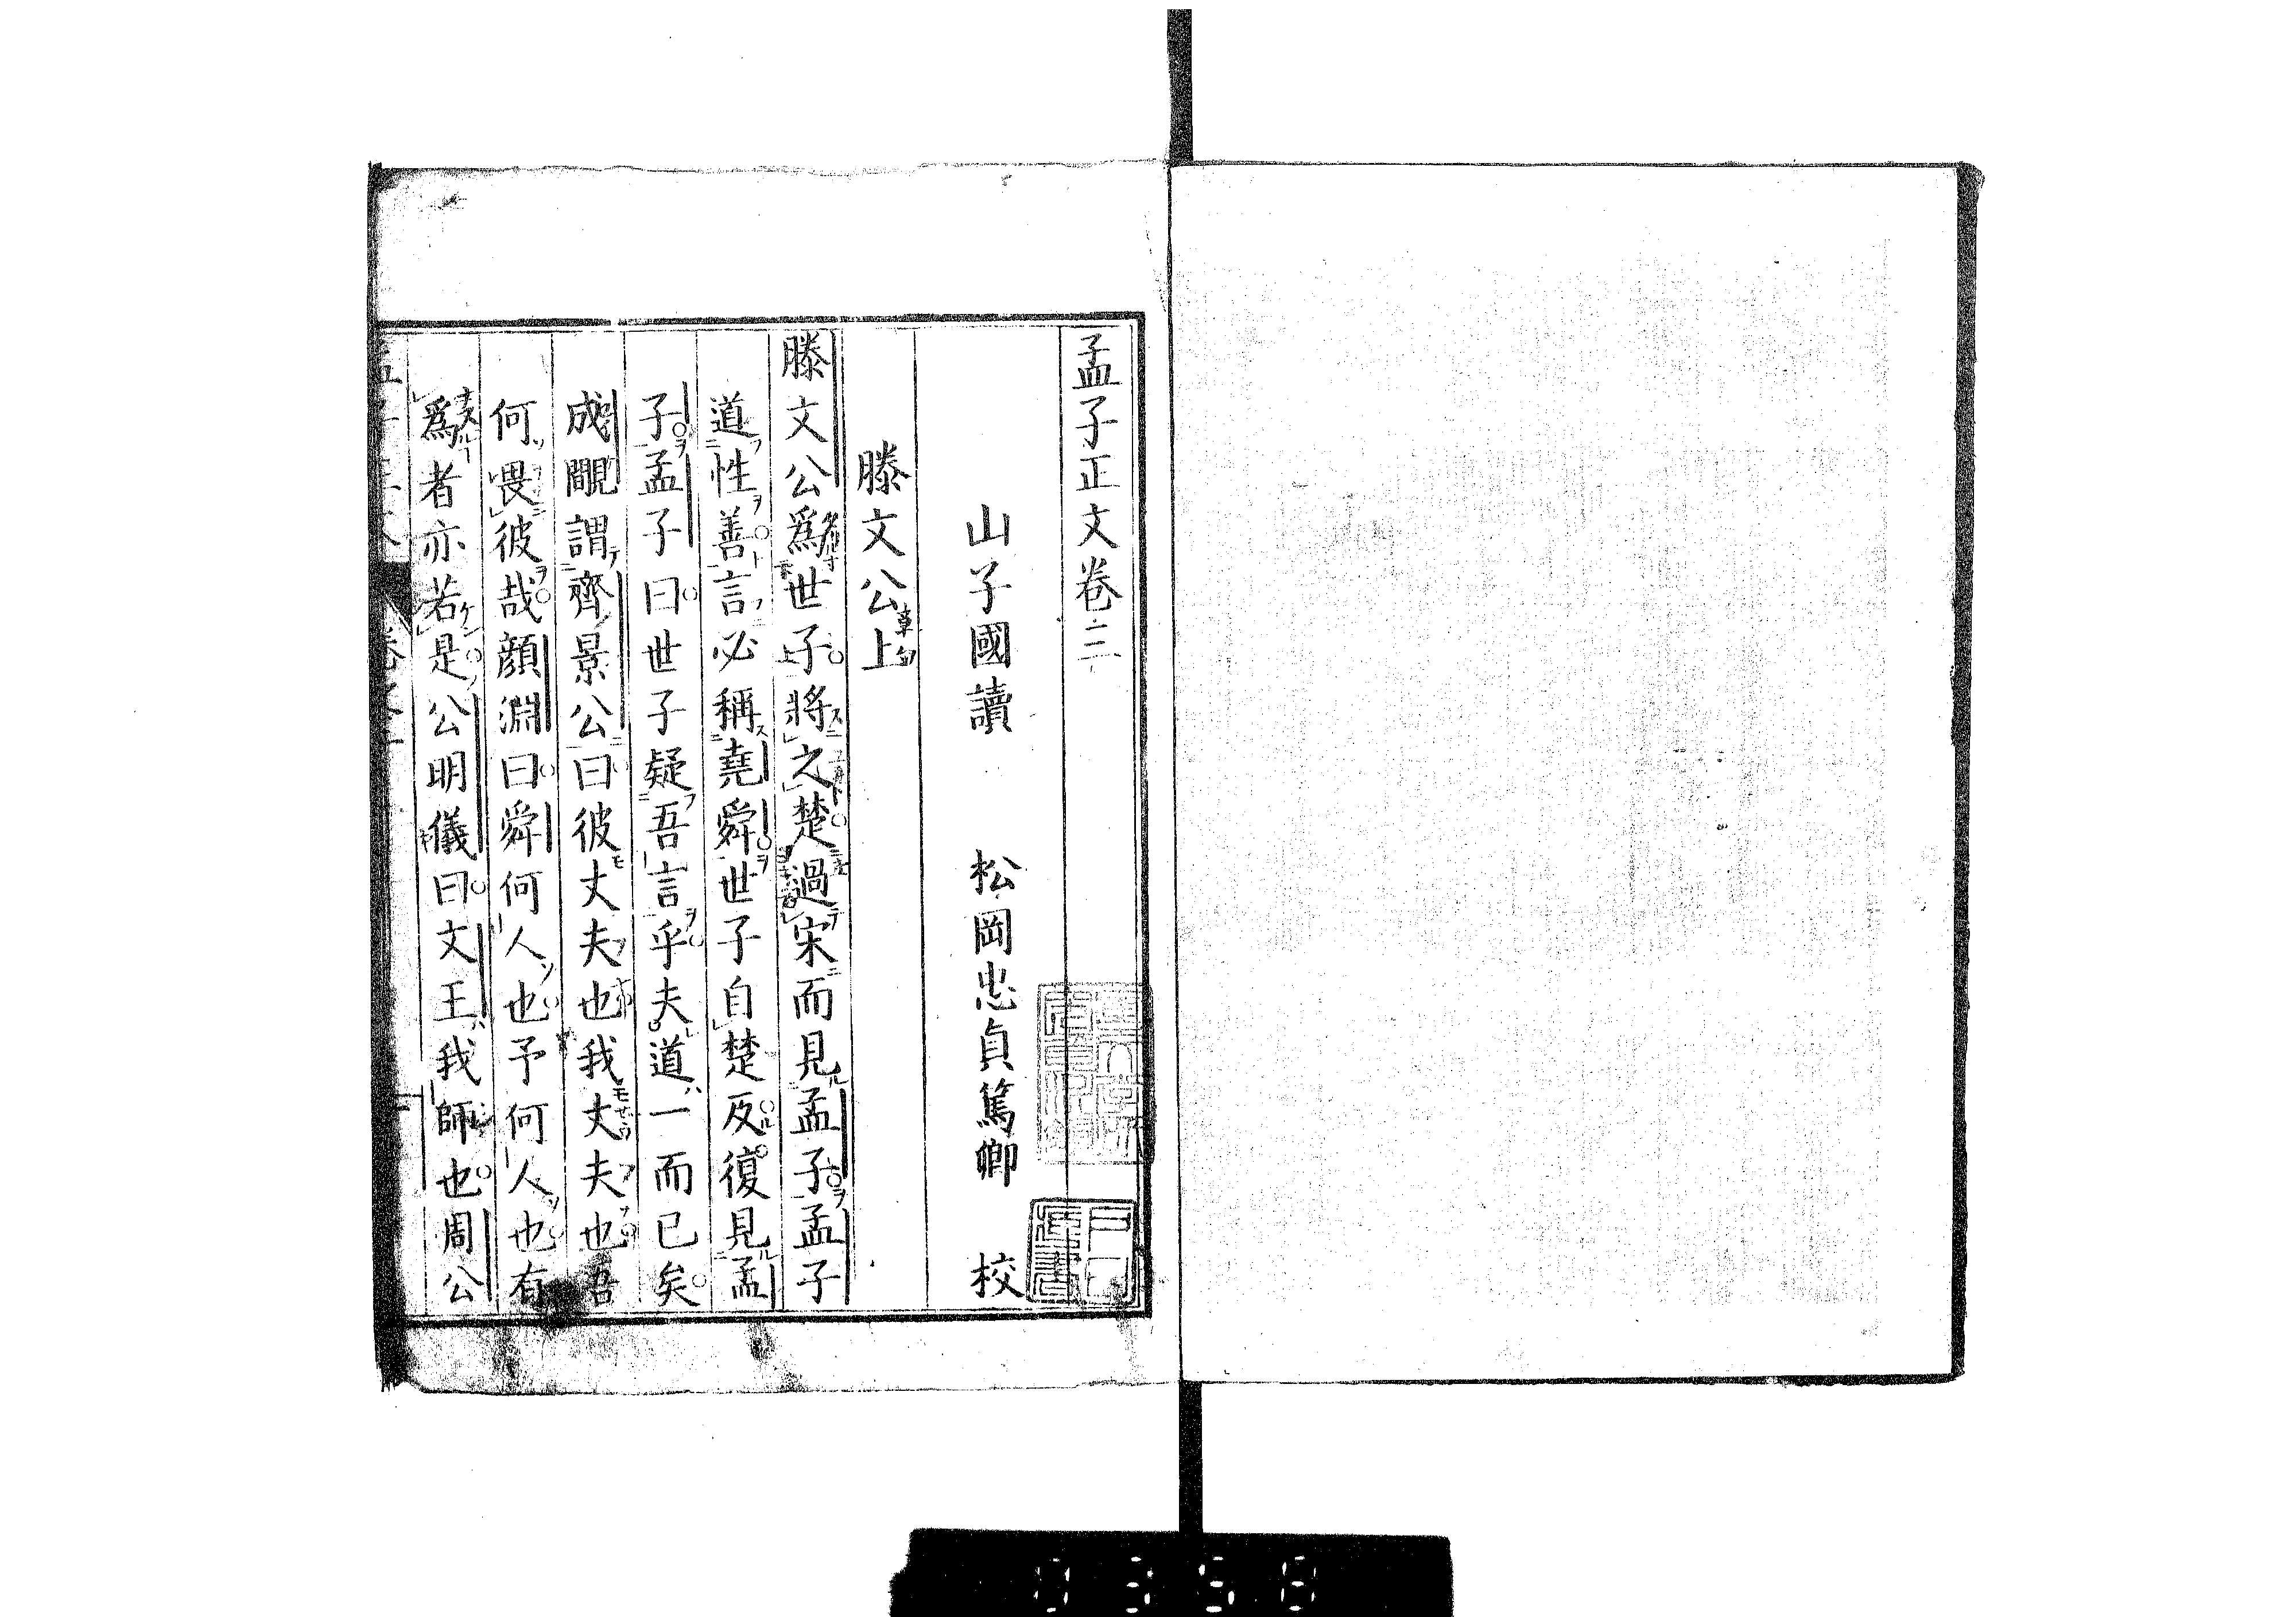 孟子正文卷三
山子國讀 松岡忠貞篤卿 校
滕文公上 章句
滕文公爲世子將之楚過宋而見孟子孟子
道性善言必稱堯舜世子自楚反復見孟
子孟子曰世子疑吾言乎夫道一而已矣
成覸謂齊景公曰彼丈夫也我丈夫也吾
何畏彼哉顏淵曰舜何人也予何人也有
爲者亦若是公明儀曰文王我師也周公
0358